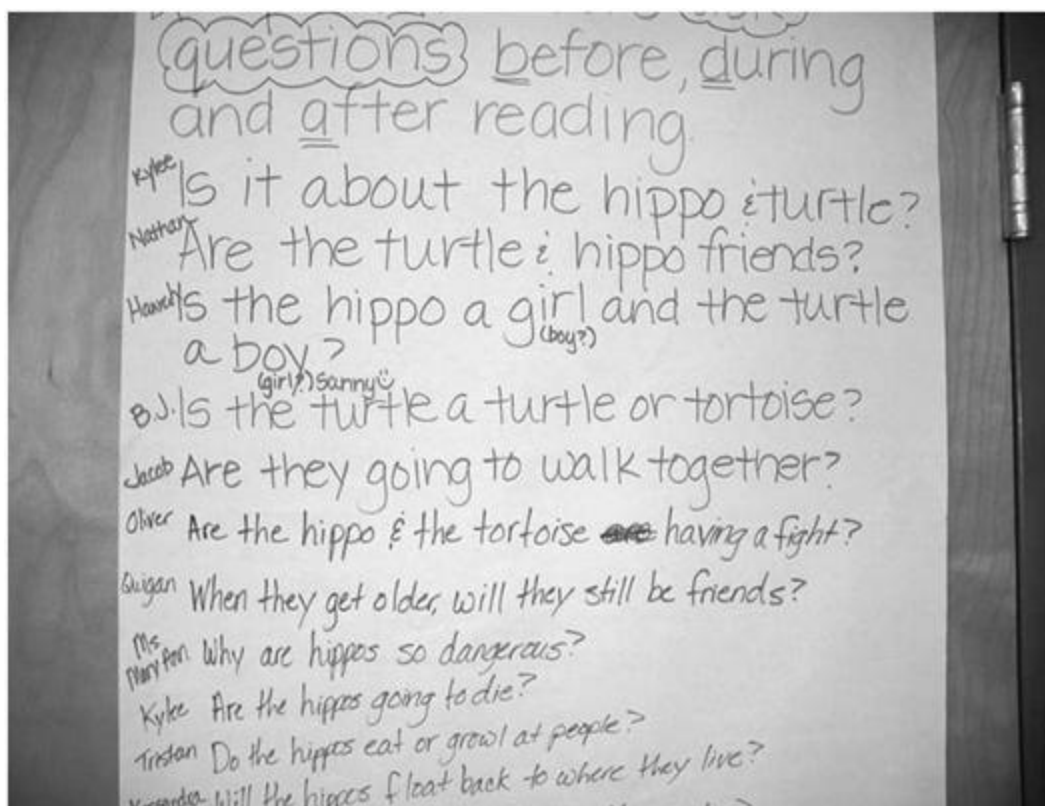 questions before, during
and after reading.
Kylee Is it about the hippo & turtle?
Nathan Are the turtle & hippo friends?
Is the hippo a girl and the turtle
(boy?)
a boy?
(girl?) Sanny
B.J. Is the turtle a turtle or tortoise?
Jacob Are they going to walk together?
Oliver Are the hippo & the tortoise having a fight?
Quigan When they get older, will they still be friends?
Ms. Mary Ann Why are hippos so dangerous?
Kylee Are the hippos going to die?
Tristan Do the hippos eat or growl at people?
Will the hippos float back to where they live?